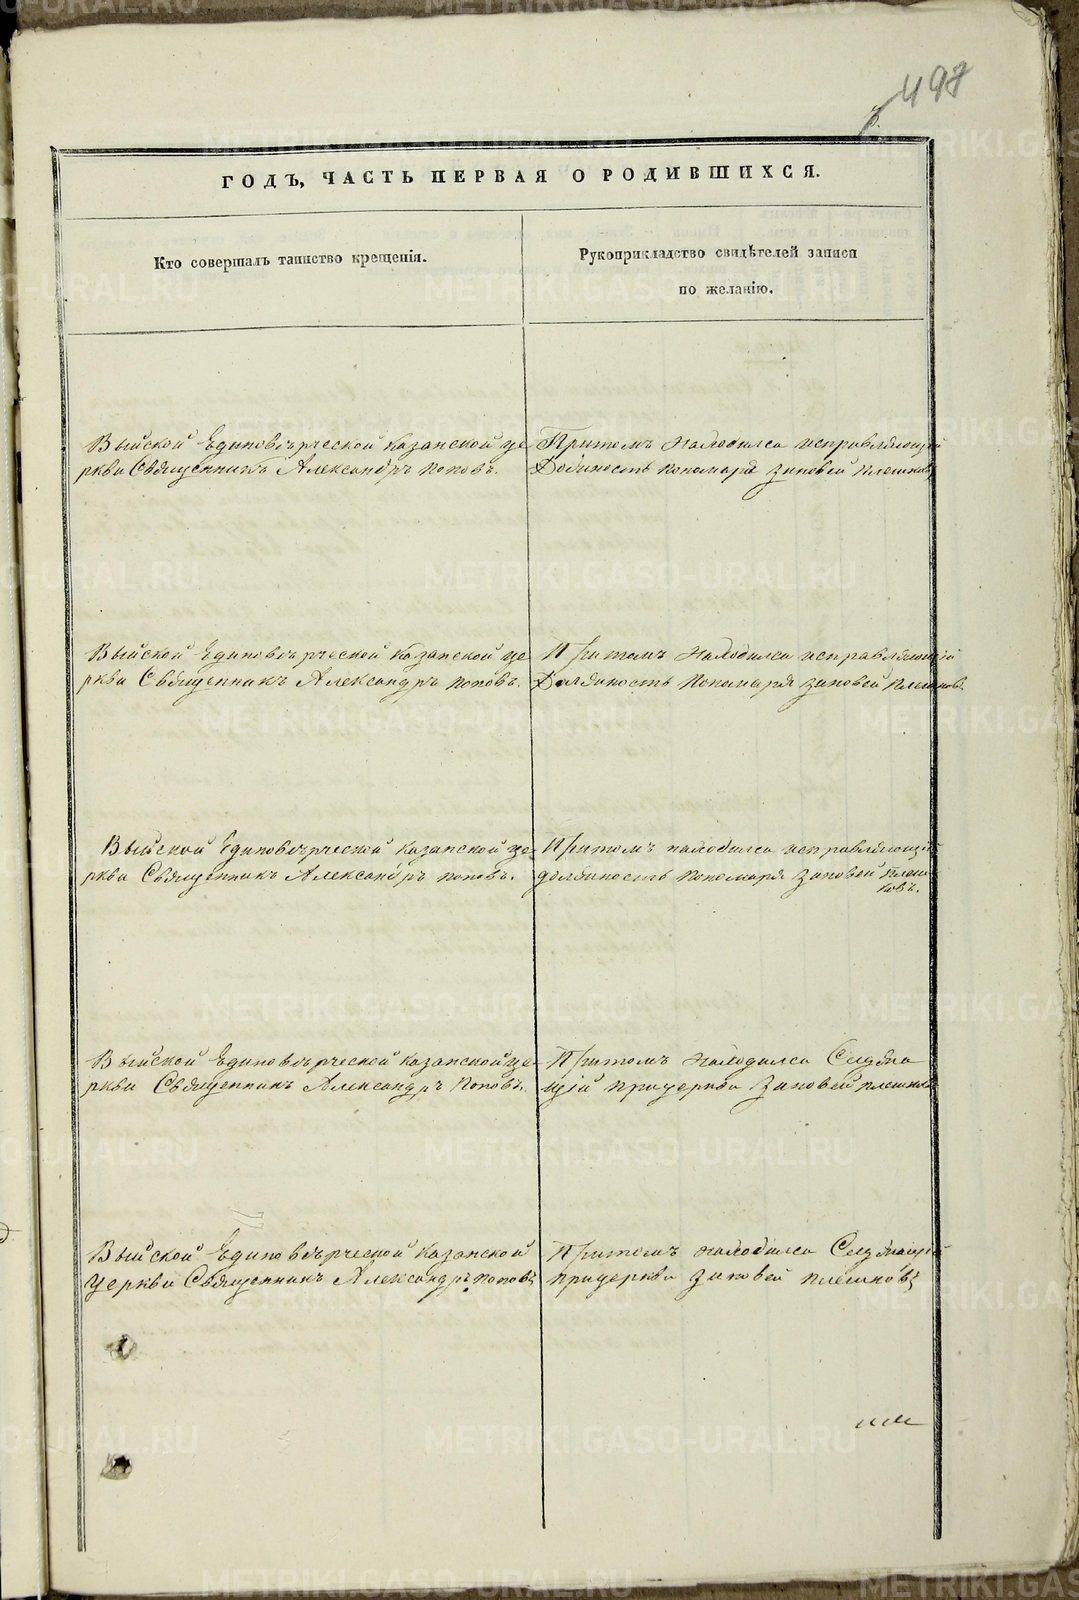 497
ГОДЪ, ЧАСТЬ ПЕРВАЯ О РОДИВШИХСЯ.
Кто совершалъ таинство крещенія.
Рукоприкладство свидѣтелей записи
по желанію.
Выйской Единовѣрческой Казанской це
ркви Священникъ Александръ Поповъ.
Притомъ находился исправляющій
Должность Пономаря Зиновей Плешков
Выйской Единовѣрческой Казанской це
ркви Священникъ Александръ Поповъ.
Притомъ находился исправляющій
Должность Пономаря Зиновей Плешков.
Выйской Единовѣрческой Казанской це
ркви Священникъ Александръ Поповъ.
Притомъ находился исправляющій
должность Пономаря Зиновей Плеш
ковъ.
Выйской Единовѣрческой Казанской це
ркви Священникъ Александръ Поповъ.
Притомъ находился Служа
щій прицеркви Зиновей Плешков
Выйской Единовѣрческой Казанской
Церкви Священникъ Александръ Поповъ
Притомъ находился Служащій
прицеркви Зиновей Плешковъ
METRIKI.GASO-URAL.RU